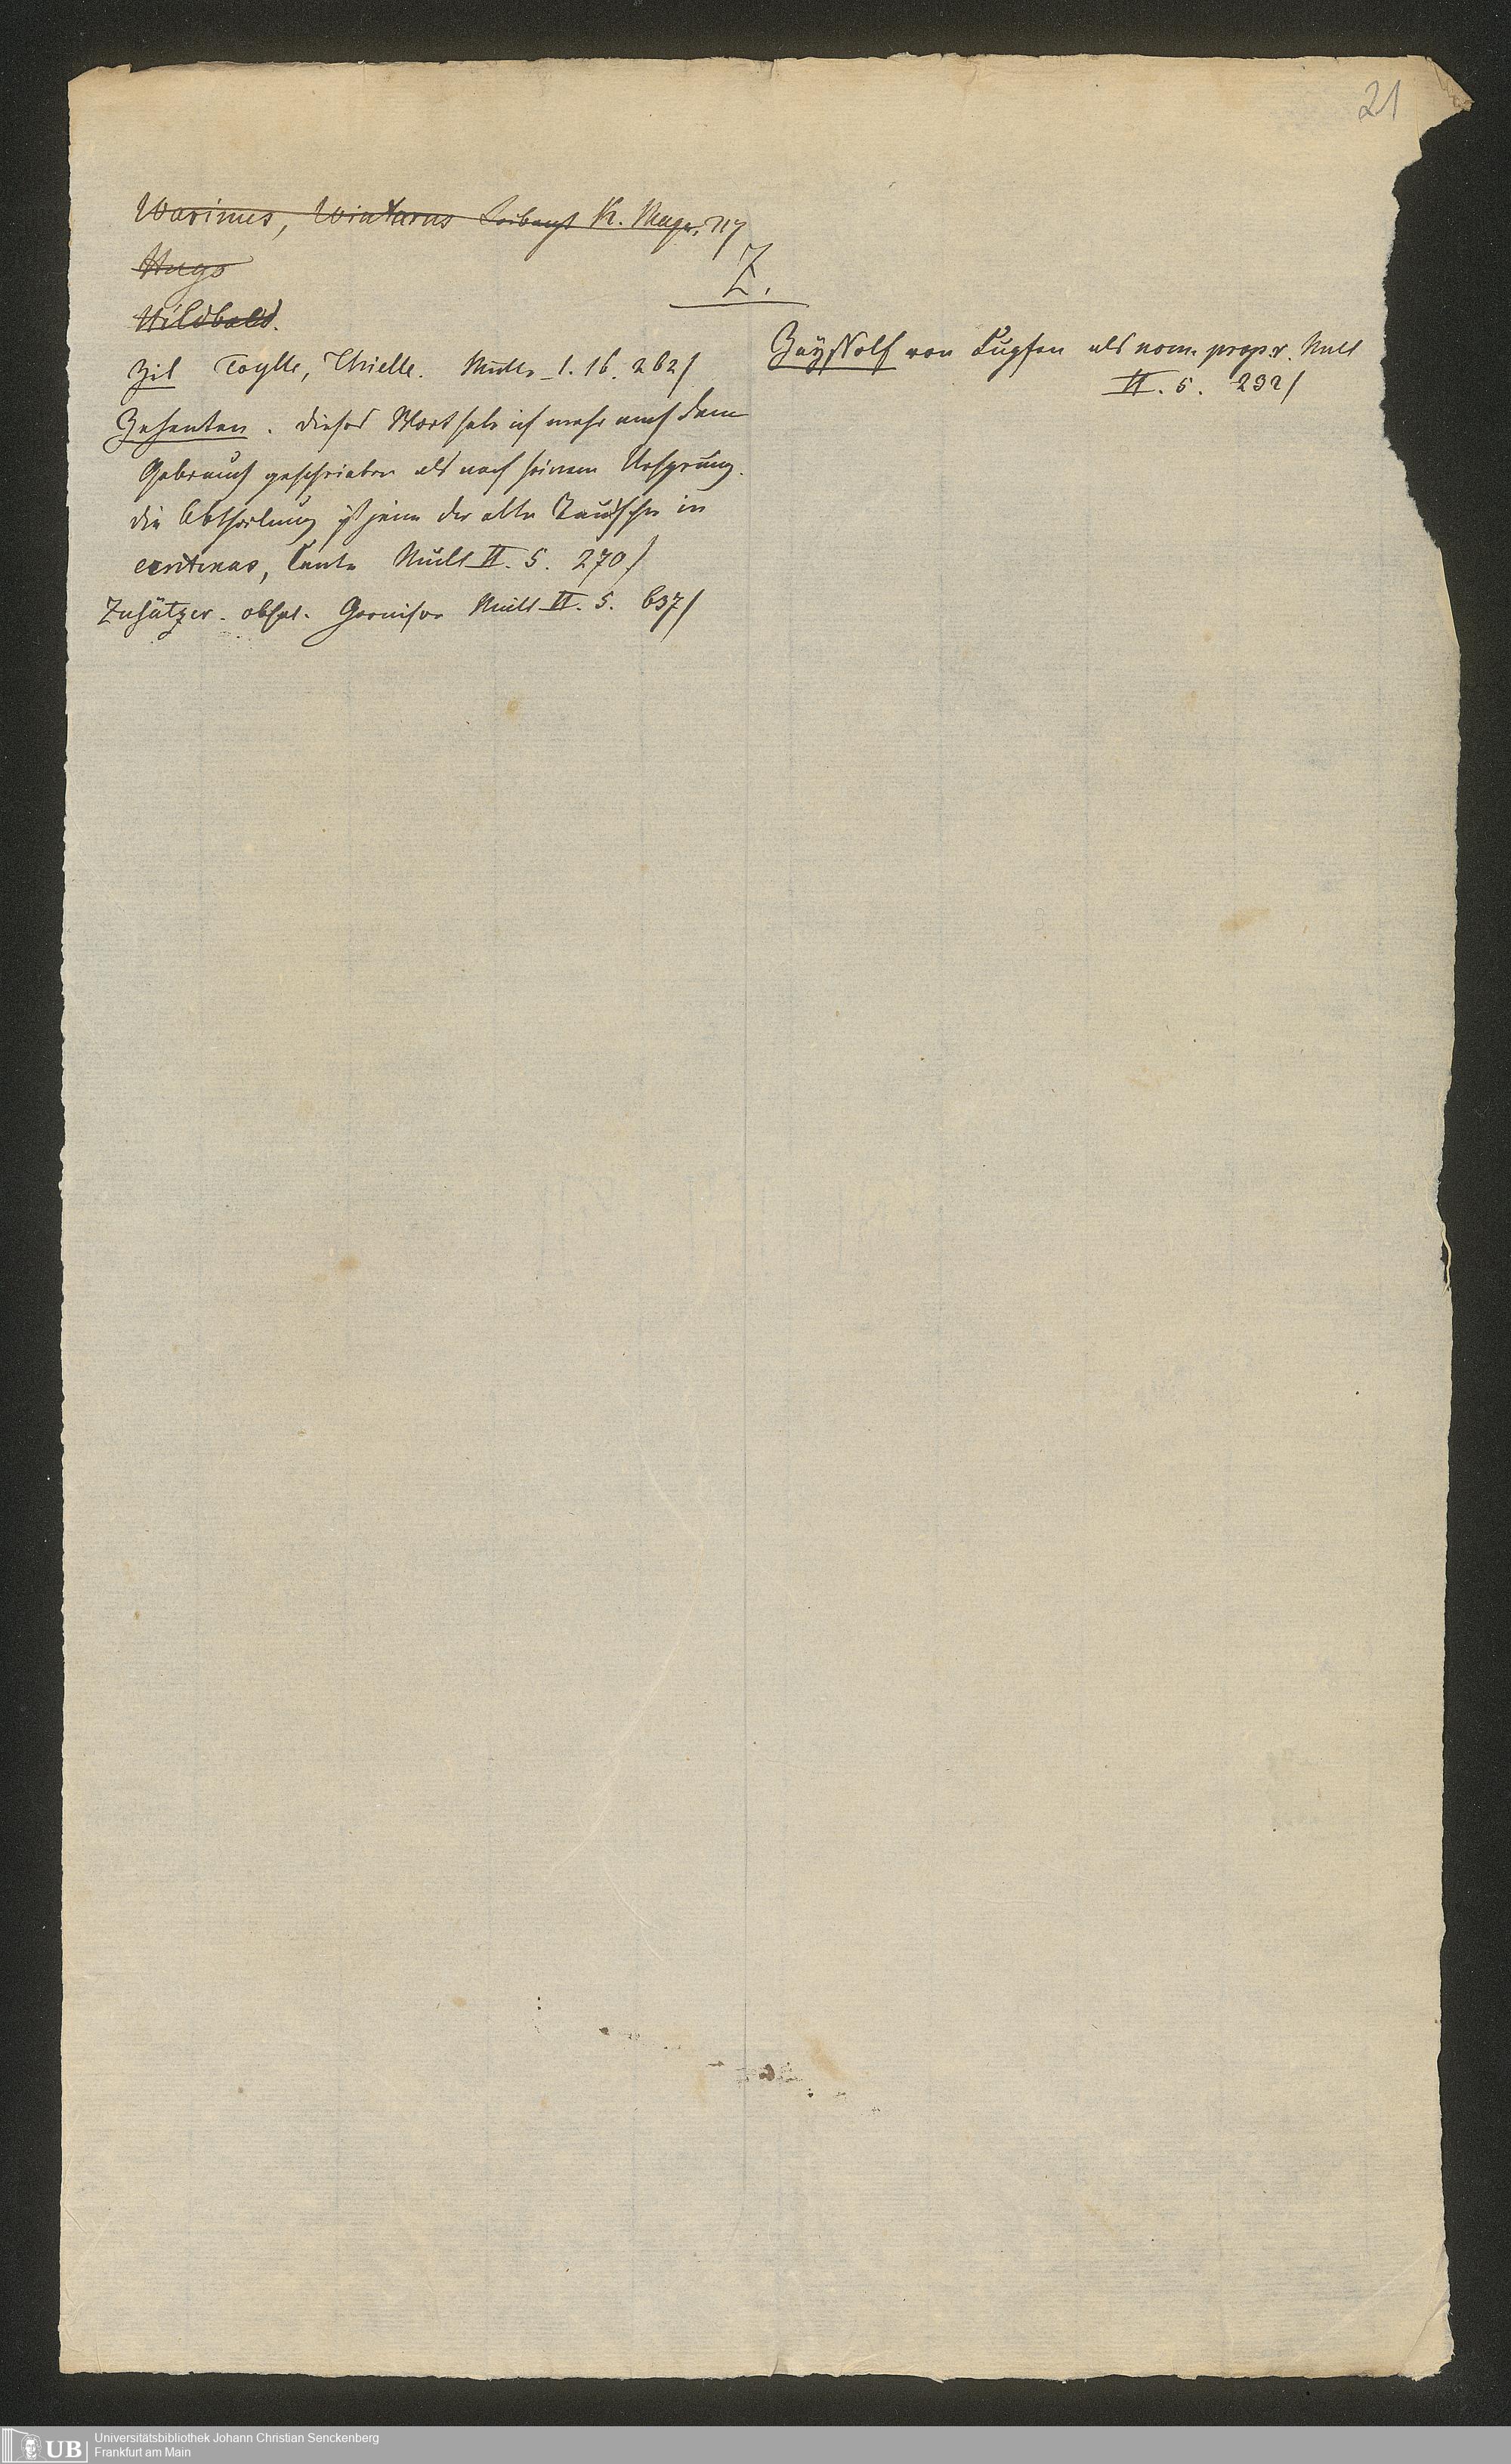 21
Warinus, Wintarus Leibarzt K. Magn. 717
Hugo
Hildbald.
Z.
Zil Toylle, Thielle. Müller I. 16. 262/
Zehenten. dieses Wort habe ich mehr nach dem
Gebrauch geschrieben als nach seinem Ursprung.
die Abtheilung ist jene der alten Teutschen in
centenas, Cente Müll II. S. 270/
Zusätzer. obsol. Garnison Müll II. S. 637/
Zeyssolf von Lupfen als nom. propr. Mull
II. S. 292/
UB
Universitätsbibliothek Johann Christian Senckenberg
Frankfurt am Main